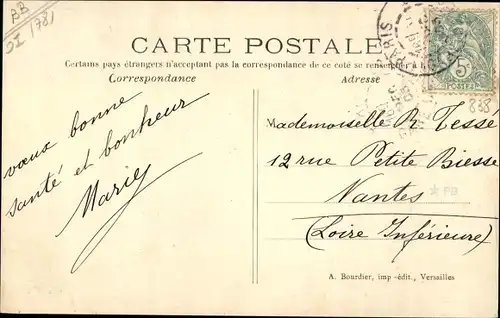 BB
OI 1781
CARTE POSTALE
Certains pays étrangers n'acceptant pas la correspondance de ce coté se renseigner à
Correspondance
Adresse
PARIS
5c
POSTES
838
vœux bonne
santé et bonheur
Mademoiselle R. Tesse
12 rue Petite Biesse
Nantes
(Loire Inférieure)
A. Bourdier, imp-édit., Versailles